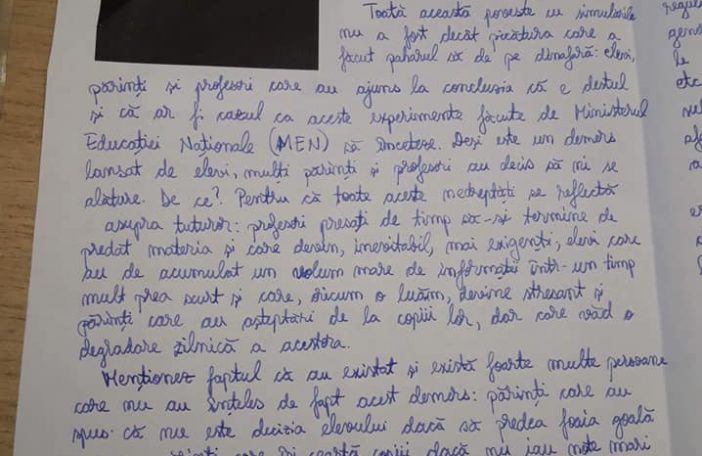 Toată această poveste cu simulările
nu a fost decât picătura care a
făcut paharul să de pe dinafară: elevi,
părinți și profesori care au ajuns la concluzia că e destul
și că ar fi cazul ca aceste experimente făcute de Ministerul
Educației Naționale (MEN) să înceteze. Deși este un demers
lansat de elevi, mulți părinți și profesori au decis să ni se
alăture. De ce? Pentru că toate aceste nedreptăți se reflectă
asupra tuturor: profesori presați de timp să-și termine de
predat materia și care devin, inevitabil, mai exigenți; elevi care
au de acumulat un volum mare de informații într-un timp
mult prea scurt și care, oricum o luăm, devine stresant și
părinți care au așteptări de la copiii lor, dar care văd o
degradare zilnică a acestora.
Menționez faptul că au existat și există foarte multe persoane
care nu au înțeles de fapt acest demers: părinți care au
spus că nu este decizia elevului dacă să predea foaia goală
care își ceartă copiii dacă nu iau note mari
le
etc